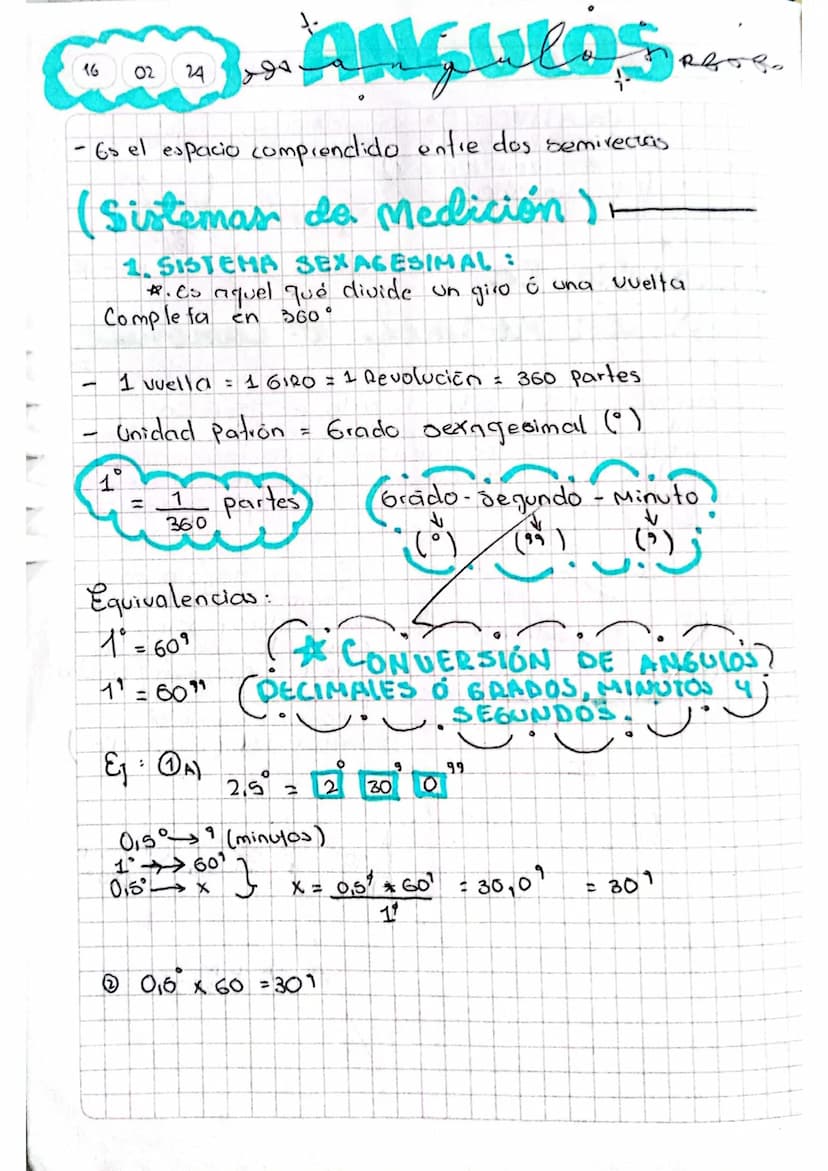 16 02 24
ANGULOS
angulos
- Es el espacio comprendido entre dos semirectas
(Sistemas de Medición)
1. SISTEMA SEXAGESIMAL:
*. Es aquel qué divide un giro ó una vuelta
Completa en 360°
- 1 vuelta = 1 GIRO = 1 Revolución = 360 partes
- Unidad Patrón = Grado sexagesimal (°)
1° = 1/360 partes
Grado - Segundo - Minuto
(°) ('') (')
Equivalencias:
1° = 60'
1' = 60''
★ CONVERSIÓN DE ANGULOS
DECIMALES Ó GRADOS, MINUTOS Y
SEGUNDOS.
Ej: ① A)
2,5° = 2° 30' 0''
0,5° → ' (minutos)
1° →→ 60'
0,5° → x } x = 0,5° * 60' / 1° = 30,0' = 30'
② 0,5° x 60 = 30'